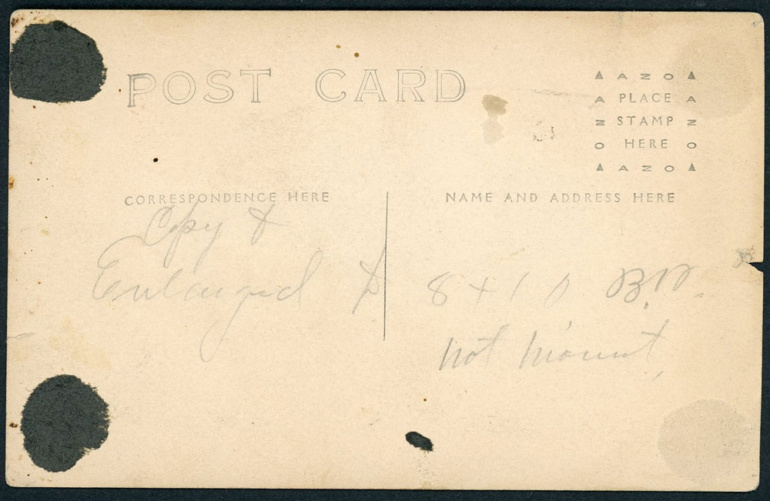 POST CARD
▲ A Z O ▲
A PLACE A
Z STAMP Z
O HERE O
▲ A Z O ▲
CORRESPONDENCE HERE
NAME AND ADDRESS HERE
Copy &
Enlarged
8 + 10
not mount